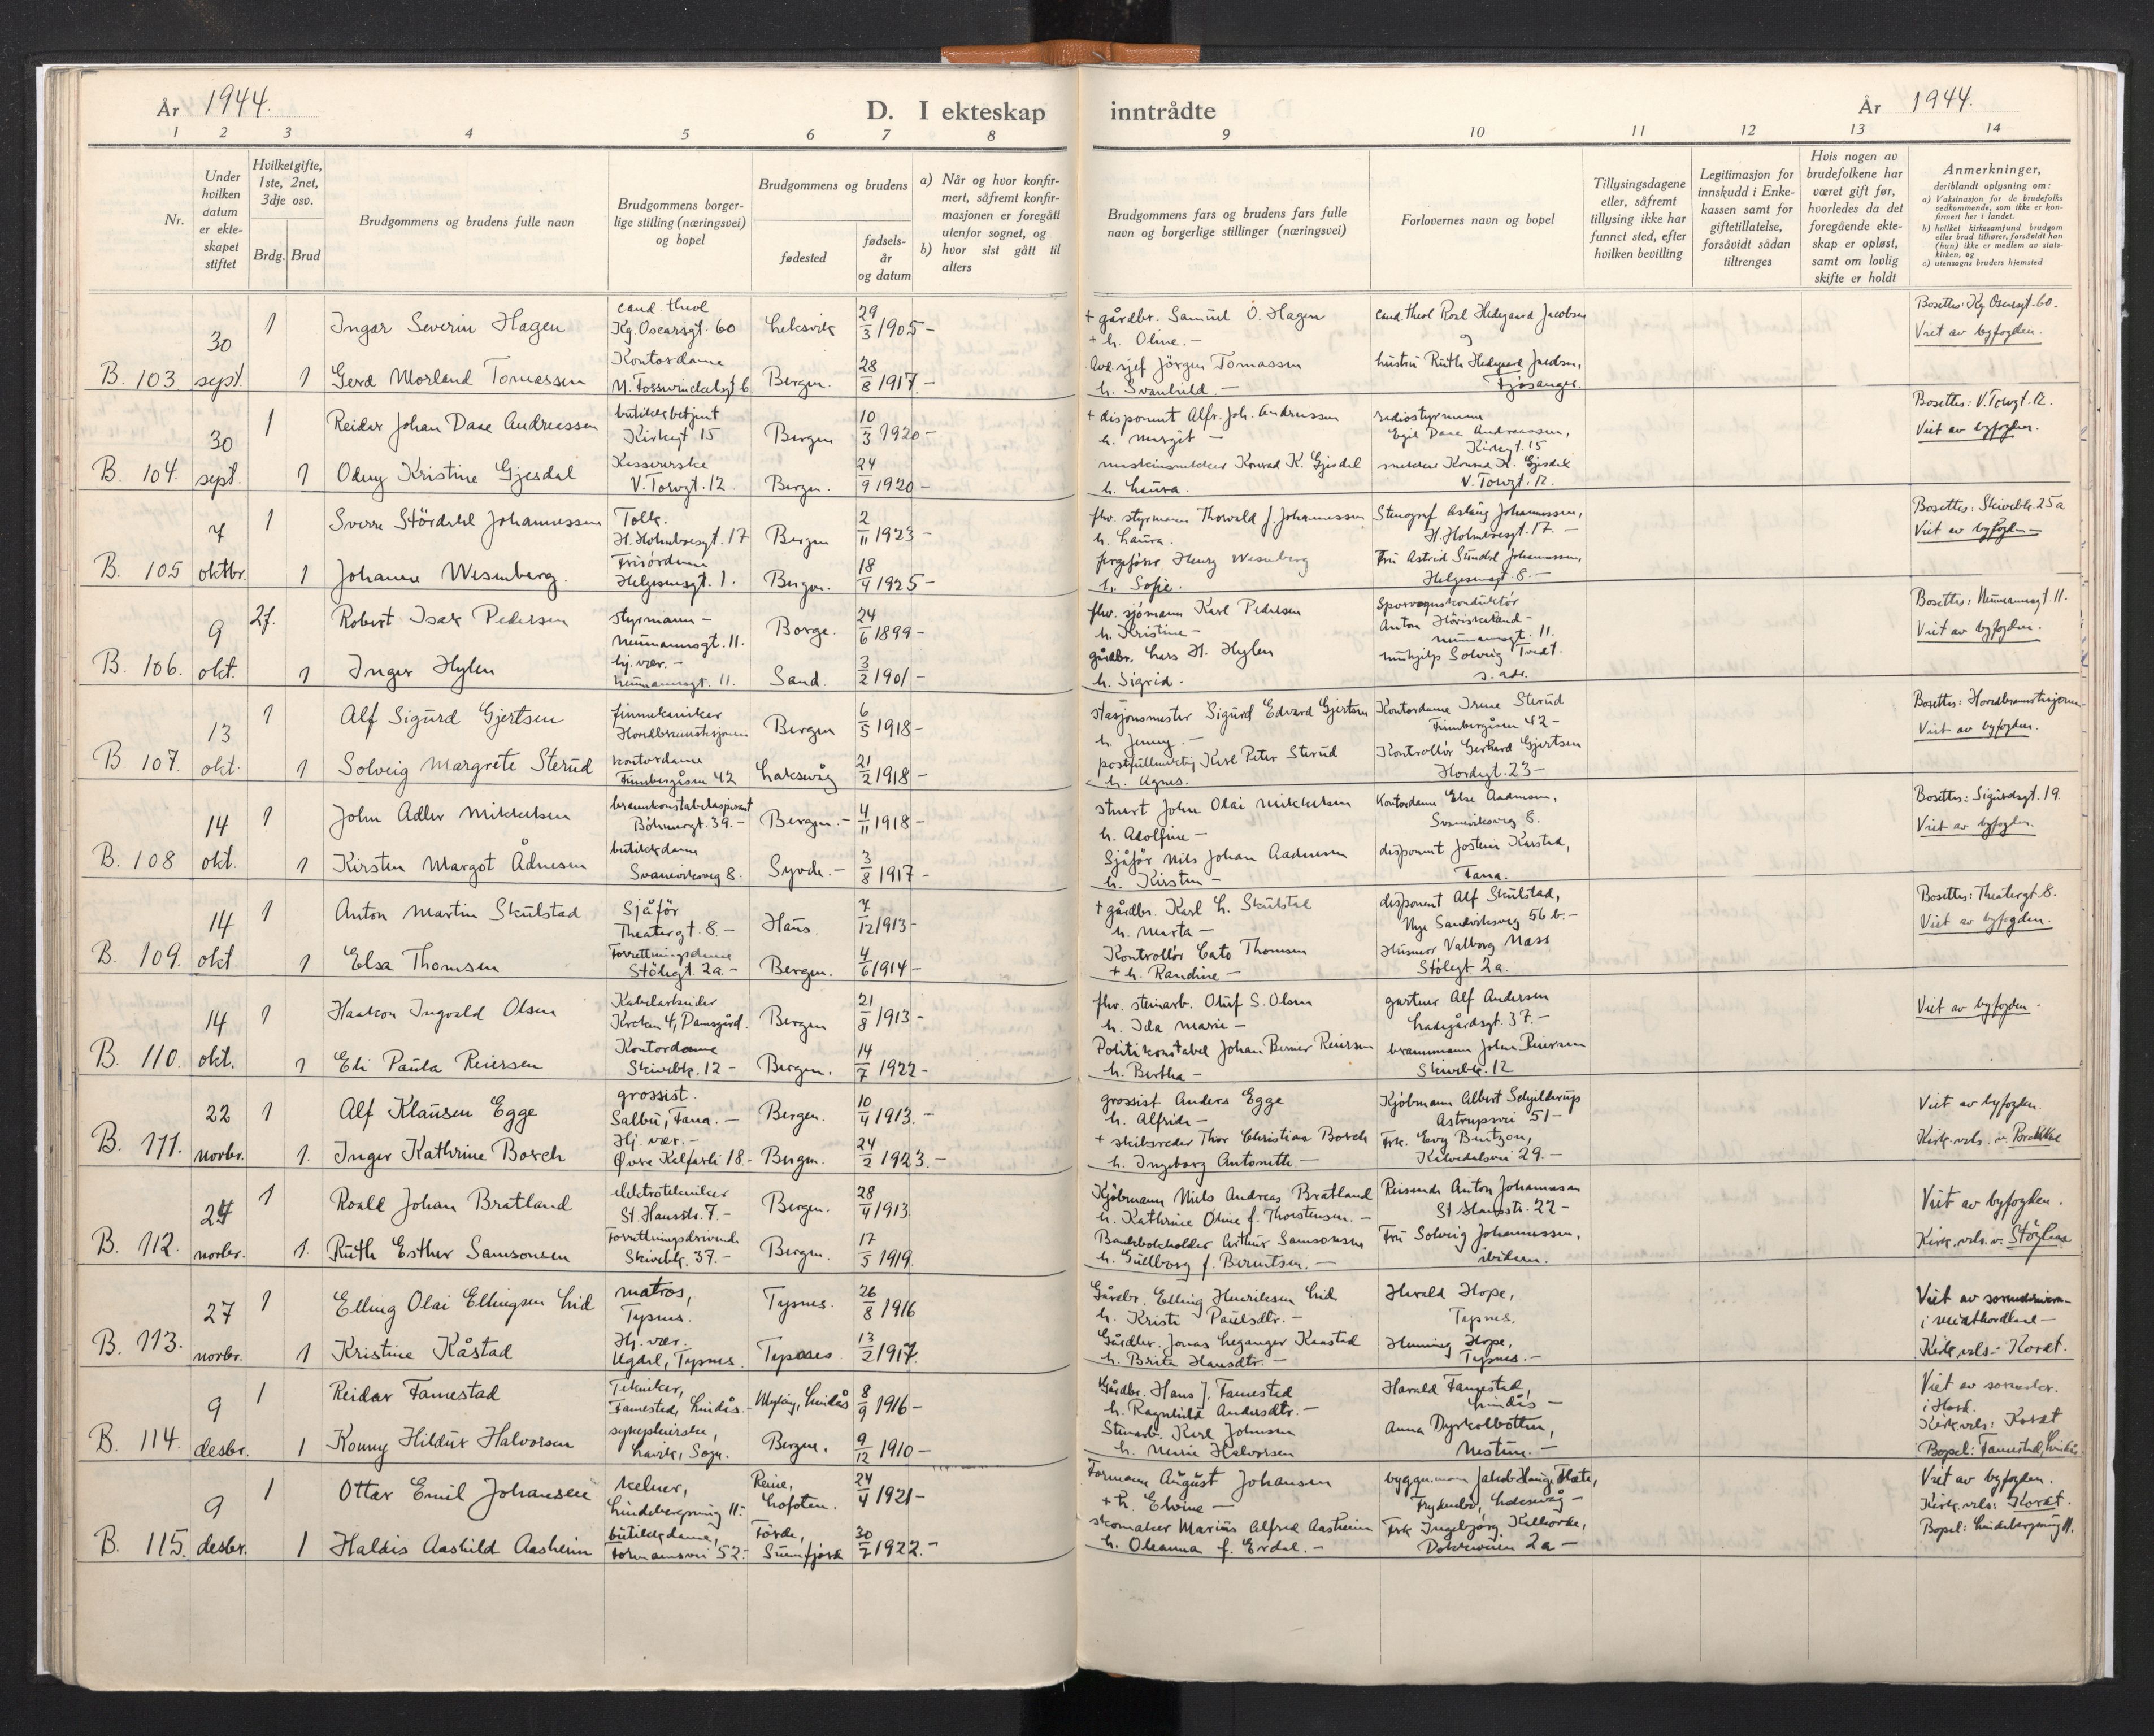 År 1944.
D. I ekteskap inntrådte
År 1944.
1 2 3 4 5 6 7 8 9 10 11 12 13 14
Nr.
Under hvilken datum er ekte-skapet stiftet
Hvilket gifte, 1ste, 2net, 3dje osv.
Brdg. Brud
Brudgommens og brudens fulle navn
Brudgommens borger-lige stilling (næringsvei) og bopel
Brudgommens og brudens
fødested
fødsels-år og datum
a) Når og hvor konfir-mert, såfremt konfir-masjonen er foregått utenfor sognet, og
b) hvor sist gått til alters
Brudgommens fars og brudens fars fulle navn og borgerlige stillinger (næringsvei)
Forlovernes navn og bopel
Tillysingsdagene eller, såfremt tillysing ikke har funnet sted, efter hvilken bevilling
Legitimasjon for innskudd i Enke-kassen samt for giftetillatelse, forsåvidt sådan tiltrenges
Hvis nogen av brudefolkene har været gift før, hvorledes da det foregående ekte-skap er opløst, samt om lovlig skifte er holdt
Anmerkninger,
deriblandt oplysning om:
a) Vaksinasjon for de brudefolks vedkommende, som ikke er kon-firmert her i landet.
b) hvilket kirkesamfund brudgom eller brud tilhører, forsåvidt han (hun) ikke er medlem av stats-kirken, og
c) utensogns bruders hjemsted
B. 103 30 sept. 1 Ingar Severin Hagen cand. theol Kg Oscarsgt. 60 Leksvik 29/3 1905 -
+ gårdbr. Samuel O. Hagen h. Oline. - cand. theol Hedegaard Jacobsen og Bosettes: Kg. Oscarsgt. 60. Viet av byfogden.
1 Gerd Morland Tomassen Kontordame 6 Bergen. 28/8 1917 -
Avd. sjef Jörgen Tomassen h. Svanhild - hustru Ruth Hedegaard Jacobsen, Fjösanger.
B. 104. 30 sept. 1 Reidar Johan Daae Andreassen butikkbetjent Kirkegt 15 Bergen 10/3 1920 -
+ disponent Alfr. Joh. Andreassen h. Margit - radiostyrmann Egil Daae Andreassen, Kirkegt. 15 Bosettes: V. Torvgt. 12. Viet av byfogden.
1 Odny Kristine Gjesdal Kassererske V. Torvgt. 12 Bergen. 24/9 1920 -
Konrad K. Gjesdal h. Laura. snekker Konrad K. Gjesdal V. Torvgt. 12.
B. 105 7 oktbr. 1 Sverre Stördahl Johannessen Tolk. H. Holmboesgt. 17 Bergen 2/11 1923 -
fhv. styrmann Thorvald J. Johannessen h. Laura. Stenograf Aslaug Johannessen, H. Holmboesgt. 17. - Bosettes: Skivebk. 25a Viet av byfogden -
1 Johanne Wesenberg. Frisördame Helgesensgt. 1. Bergen. 18/4 1925 -
Henry Wesenberg h. Sofie. Fru Astrid Johannessen, Helgesensgt. 8. -
B. 106. 9 okt. 2f. Robert Isak Pedersen styrmann - Neumannsgt. 11. Borge. 24/6 1899 -
fhv. sjömann Karl Pedersen h. Kristine - Sporvognskonduktör Anton Neumannsgt. 11. Bosettes: Neumannsgt. 11. Viet av byfogden.
1 Inger Hylen hj. vær. - Neumannsgt. 11. Sand. 3/2 1901 -
gårdbr. Lars H. Hylen h. Sigrid. Solveig Tvedt. s. adr.
B. 107. 13 okt. 1 Alf Sigurd Gjertsen finmekaniker Bergen 6/5 1918 -
stasjonsmester Sigurd Edvard Gjertsen h. Jenny. - Kontordame Irene Sterud Finnbergåsen 42 - Bosettes: Viet av byfogden.
1 Solveig Margrete Sterud kontordame Finnbergåsen 42 Laksevåg 21/2 1918 -
Karl Peter Sterud h. Agnes. Kontrollör Gerhard Gjertsen Hordagt. 23 -
B. 108 14 okt. 1 John Adler Mikkelsen brannkonstabelaspirant Böhmergt. 39. - Bergen. - 4/11 1918 -
stuert John Olai Mikkelsen h. Adolfine - Kontordame Else Aadnesen, Svaneviksveg 8. Bosettes: Sigurdsgt. 19. Viet av byfogden.
1 Kirsten Margot Ådnesen butikkdame Svaneviksveg 8. Syvde. - 3/8 1917 -
Sjåför Nils Johan Aadnesen h. Kirsten - disponent Jostein Fana.
B. 109. 14 okt. 1 Anton Martin Skulstad Sjåför Theatergt. 8. - Haus. 7/12 1913 -
+ gårdbr. Karl L. Skulstad h. Marta - disponent Alf Skulstad, Nye Sandviksveg 56 b. - Bosettes: Theatergt. 8. Viet av byfogden.
1 Elsa Thomsen Forretningsdame Stölegt. 2a. - Bergen. 4/6 1914 -
Kontrollör Cato Thomsen + h. Randine - Husmor Valborg Næss Stölegt 2a.
B. 110. 14 okt. 1 Haakon Ingvald Olsen Kabelarbeider Kroken 4, Damsgård. Bergen 21/8 1913 -
fhv. steinarb. Oluf S. Olsen h. Ida Marie - gartner Alf Andersen Ladegårdsgt. 37. - Viet av byfogden -
1 Eli Paula Reiersen Kontordame Skivebk. 12 - Bergen. 14/7 1922 -
Politikonstabel Johan Berner Reiersen h. Bertha - brannmann John Reiersen Skivebk. 12
B. 111. 22 novbr. 1 Alf Klausen Egge grossist. Salbu, Fana. - Bergen. 10/4 1913. -
grossist Anders Egge h. Alfrida - Kjöbmann Albert Schjelderup Astrupsvei 51 - Viet av byfogden.
1. Inger Kathrine Bosch Hj. vær. - Øvre Kalfarli 18 - Bergen. 24/2 1923. -
+ skibsreder Thor Christian Bosch h. Ingeborg Antonette - Frk. Evy Kalvedalsvei 29. - Kirk. vels. v. Brekke
B. 112. 24 novbr. 1 Roald Johan Bratland elektrotekniker St. Hansstr. 7. - Bergen. 28/4 1913
Kjöbmann Niels Andreas Bratland h. Kathrine Oline f. Thorstensen. - Anton Johannessen St Hansstr. 22 - Viet av byfogden.
1. Ruth Esther Samsonsen Forretningsdrivende Skivebk. 37. - Bergen. 17/5 1919.
Bankbokholder Arthur Samsonsen h. Gullborg f. Berentsen. - Fru Solveig Johannessen, ibidem. Kirk. vels. v.
B. 113. 27 novbr. 1 Elling Olai Ellingsen Lid matros, Tysnes. Tysnes. 26/8 1916
Gårdbr. Elling Henriksen Lid h. Kristi Paulsdtr. - Harald Hope, Tysnes. Viet av sorenskriveren i Midthordland -
1 Kristine Kåstad Hj. vær. Ugdal, Tysnes. Tysnes 13/2 1917.
Gårdbr. Jonas Leganger Kaastad h. Brita Hansdtr. - Henning Hope, Tysnes. - Kirk. vels. Korat.
B. 114. 9 desbr. 1 Reidar Famestad Tekniker, Famestad, Lindås. - Myking, Lindås 8/9 1916 -
Gårdbr. Hans J. Famestad h. Ragnhild Andersdtr. - Harald Famestad, Lindås - Viet av sorenskr. i Hord. Kirk vels: Korat
1 Konny Hildur Halvorsen sykepleierske, Lavik, Sogn. Bergen. 9/12 1910 -
Steinarb. Karl Johnsen h. Marie Halvorsen Anna Dyrkolbotten, Nestun. - Bopel: Famestad, Lindås.
B. 115. 9 desbr. 1 Ottar Emil Johansen kelner, 11. Reine, Lofoten. 24/4 1921 -
Formann August Johansen + h. Elvine - Jakob Hauge Flate, Frydenbö, Laksevåg - Viet av byfogden. Kirk. vels: Korat.
1 Haldis Aashild Aasheim butikkdame, Formannsvei 52. - Förde, Sunnfjord 30/7 1922. -
skomaker Marius Alfred Aasheim h. Oleanna f. Erdal. - Frk Ingebjørg 2a - Bopel: 11.